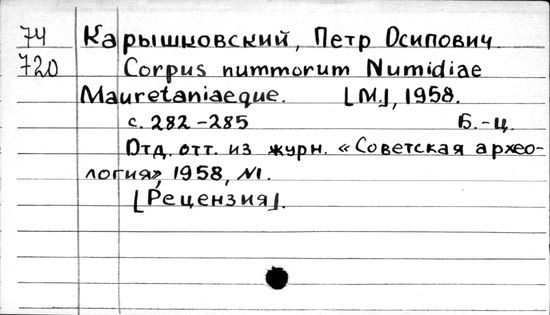 74 Карышковский, Петр Осипович
720 Corpus nummorum Numidiae
Mauretaniaeque. [М.], 1958.
с. 282-285 Б.-ц.
Отд. отт. из журн. «Советская архео-
логия», 1958, №1.
[Рецензия].